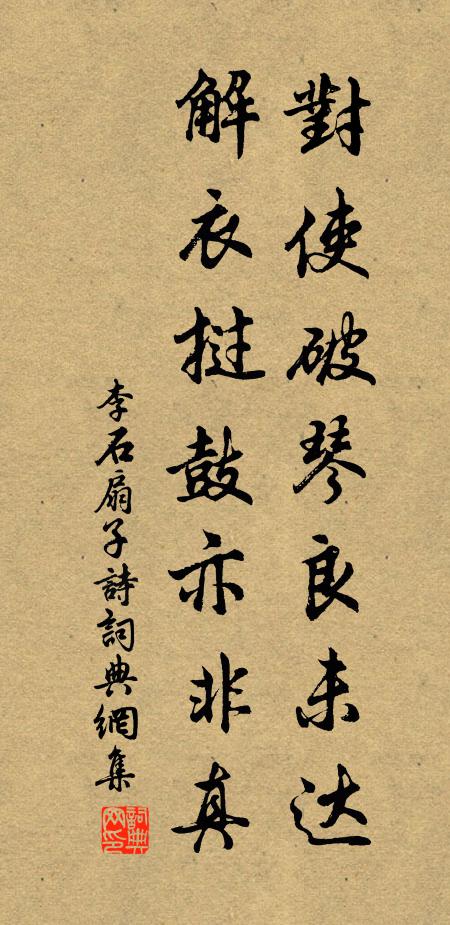 對使破琴良未达
解衣挝鼓亦非真
李石扇子詩詞典網集
詞典網印